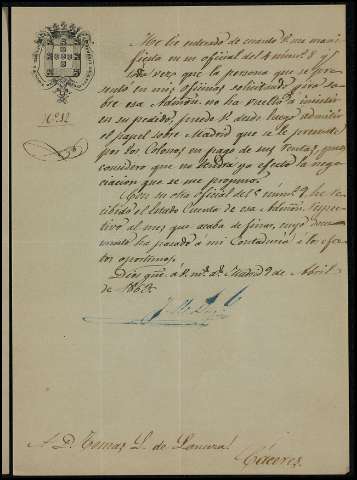 Nº 312
Me he enterado de cuanto V. me mani-
fiesta en su oficial del 4 núm.º 8 y
una vez que la persona que se pre-
sentó en mis oficinas solicitando giro so-
bre esa Admón. no ha vuelto a insistir
en su pedido, puede V. desde luego admitir
el papel sobre Madrid que se le presente
por los Colonos en pago de sus rentas, pues
considero que no tendrá ya efecto la nego-
ciación que se me propuso.
Con su otra oficial del núm.º 9 he re-
cibido el Estado Cuenta de esa Admón. respec-
tivo al mes que acaba de finar, cuyo docu-
mento ha pasado á mi Contaduría a los efec-
tos oportunos.
Dios gue. á V. m.s a.s Madrid 9 de Abril
de 186
A D. Tomas L. de
Cáceres.